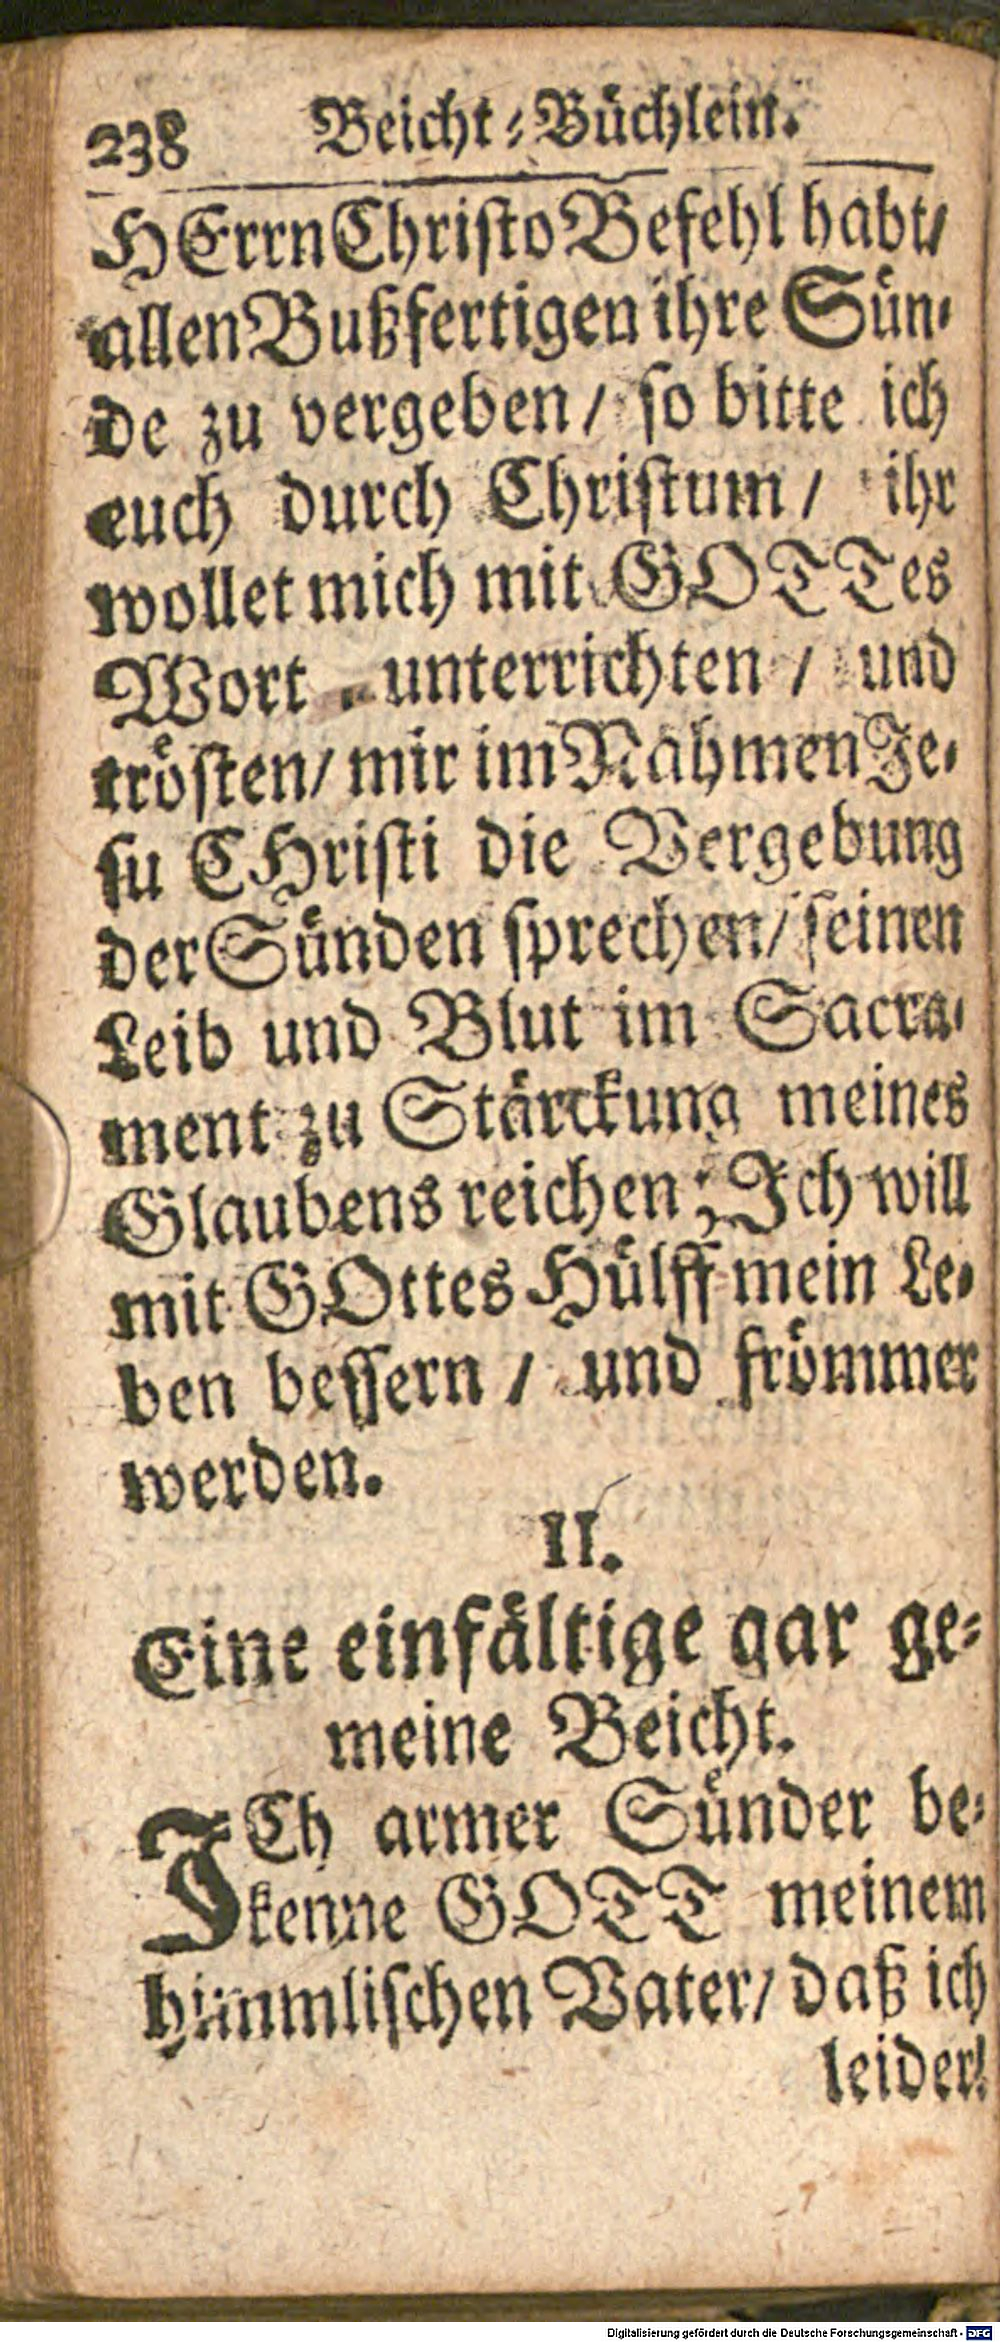 238 Beicht⸗Büchlein.
HErrn Christo Befehl habt/
allen Bußfertigen ihre Sün⸗
de zu vergeben/ so bitte ich
euch durch Christum/ ihr
wollet mich mit GOTTes
Wort unterrichten/ und
trösten/ mir im Nahmen Je⸗
su CHristi die Vergebung
der Sünden sprechen/ seinen
Leib und Blut im Sacra⸗
ment zu Stärckung meines
Glaubens reichen; Ich will
mit GOttes Hülff mein Le⸗
ben bessern/ und frömmer
werden.
II.
Eine einfältige gar ge⸗
meine Beicht.
ICh armer Sünder be⸗
kenne GOTT meinem
himmlischen Vater/ daß ich
leider!
Digitalisierung gefördert durch die Deutsche Forschungsgemeinschaft - DFG